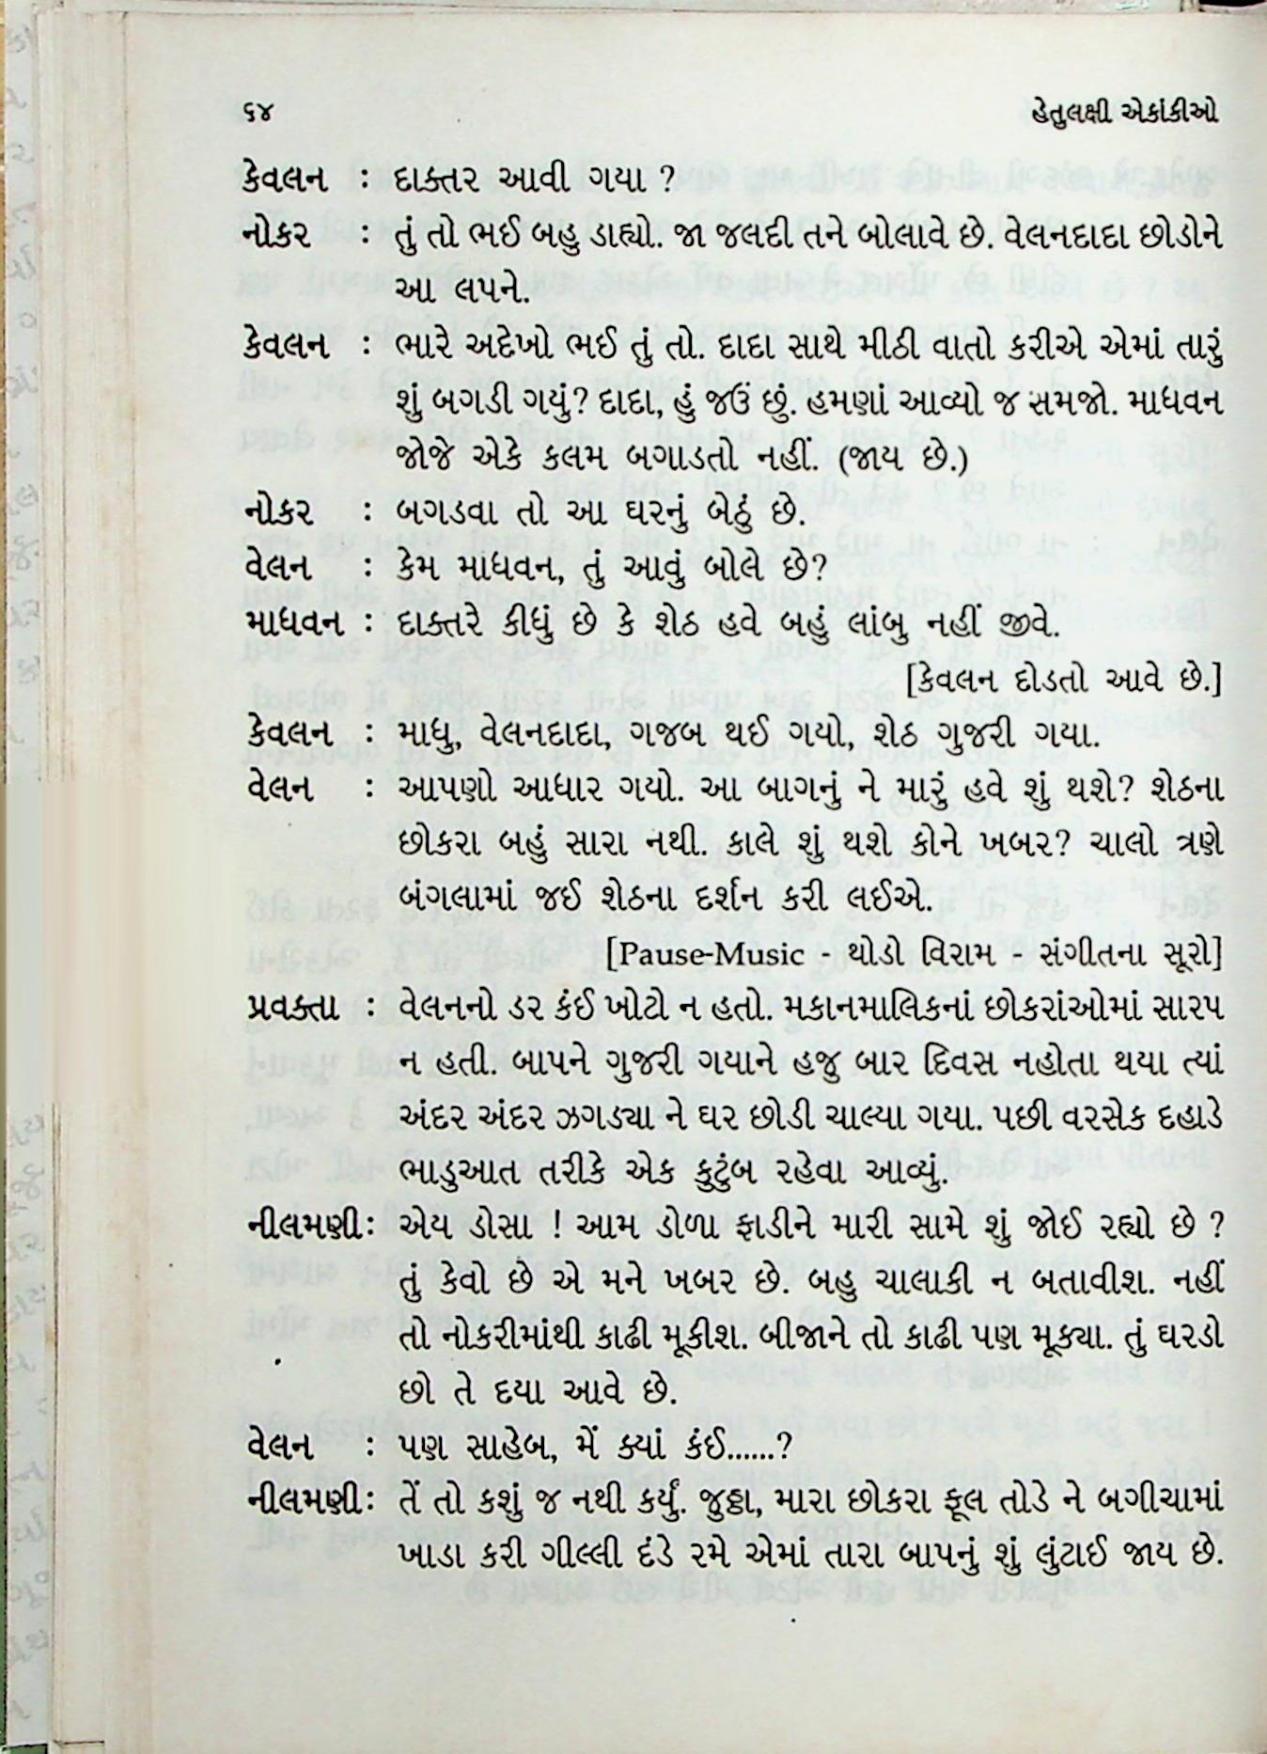 ૬૪ હેતુલક્ષી એકાંકીઓ
કેવલન : દાક્તર આવી ગયા ?
નોકર : તું તો ભઈ બહુ ડાહ્યો. જા જલદી તને બોલાવે છે. વેલનદાદા છોડોને
આ લપને.
કેવલન : ભારે અદેખો ભઈ તું તો. દાદા સાથે મીઠી વાતો કરીએ એમાં તારું
શું બગડી ગયું? દાદા, હું જઉં છું. હમણાં આવ્યો જ સમજો. માધવન
જોજે એકે કલમ બગાડતો નહીં. (જાય છે.)
નોકર : બગડવા તો આ ઘરનું બેઠું છે.
વેલન : કેમ માધવન, તું આવું બોલે છે?
માધવન : દાક્તરે કીધું છે કે શેઠ હવે બહું લાંબુ નહીં જીવે.
[કેવલન દોડતો આવે છે.]
કેવલન : માધુ, વેલનદાદા, ગજબ થઈ ગયો, શેઠ ગુજરી ગયા.
વેલન : આપણો આધાર ગયો. આ બાગનું ને મારું હવે શું થશે? શેઠના
છોકરા બહું સારા નથી. કાલે શું થશે કોને ખબર? ચાલો ત્રણે
બંગલામાં જઈ શેઠના દર્શન કરી લઈએ.
[Pause-Music - થોડો વિરામ - સંગીતના સૂરો]
પ્રવક્તા : વેલનનો ડર કંઈ ખોટો ન હતો. મકાનમાલિકનાં છોકરાંઓમાં સારપ
ન હતી. બાપને ગુજરી ગયાને હજુ બાર દિવસ નહોતા થયા ત્યાં
અંદર અંદર ઝગડ્યા ને ઘર છોડી ચાલ્યા ગયા. પછી વરસેક દહાડે
ભાડુઆત તરીકે એક કુટુંબ રહેવા આવ્યું.
નીલમણી: એય ડોસા ! આમ ડોળા ફાડીને મારી સામે શું જોઈ રહ્યો છે ?
તું કેવો છે એ મને ખબર છે. બહુ ચાલાકી ન બતાવીશ. નહીં
તો નોકરીમાંથી કાઢી મૂકીશ. બીજાને તો કાઢી પણ મૂક્યા. તું ઘરડો
છો તે દયા આવે છે.
વેલન : પણ સાહેબ, મેં ક્યાં કંઈ......?
નીલમણી: તેં તો કશું જ નથી કર્યું. જુઠ્ઠા, મારા છોકરા ફૂલ તોડે ને બગીચામાં
ખાડા કરી ગીલ્લી દંડે રમે એમાં તારા બાપનું શું લુંટાઈ જાય છે.